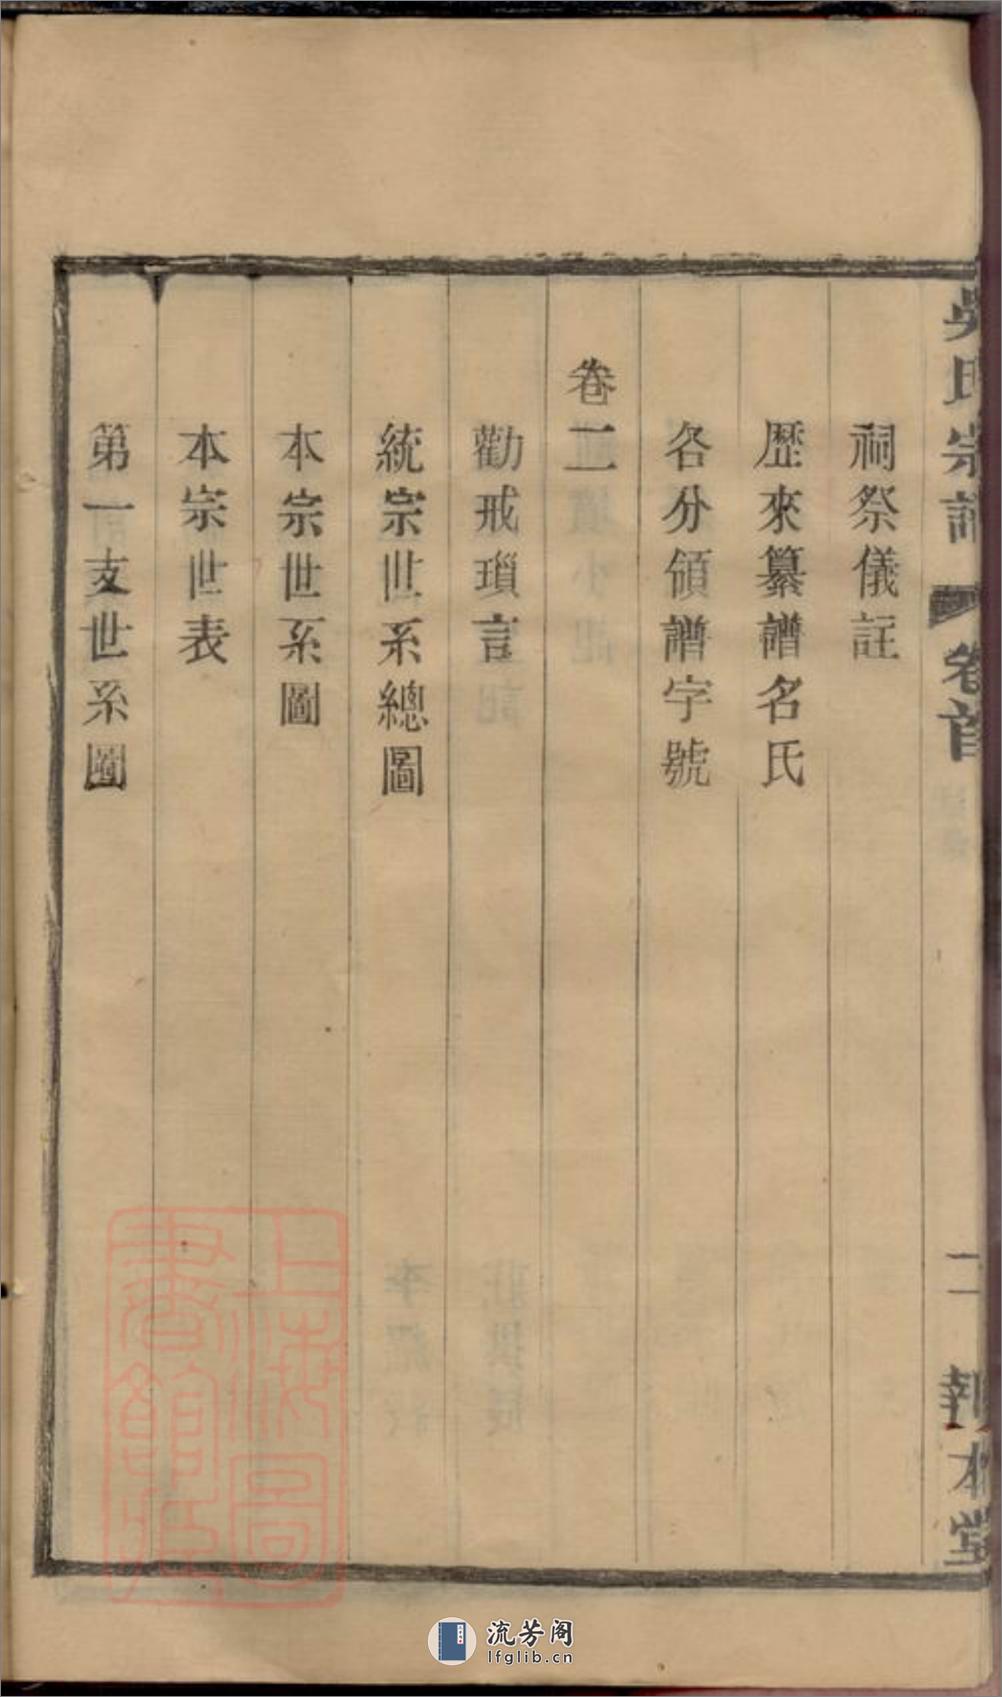 吳氏宗譜 卷首 二 報本堂
祠祭儀註
歷來纂譜名氏
各分領譜字號
卷二
勸戒瑣言
統宗世系總圖
本宗世系圖
本宗世表
第一支世系圖
上海圖書館藏
流芳阁
lfglib.cn